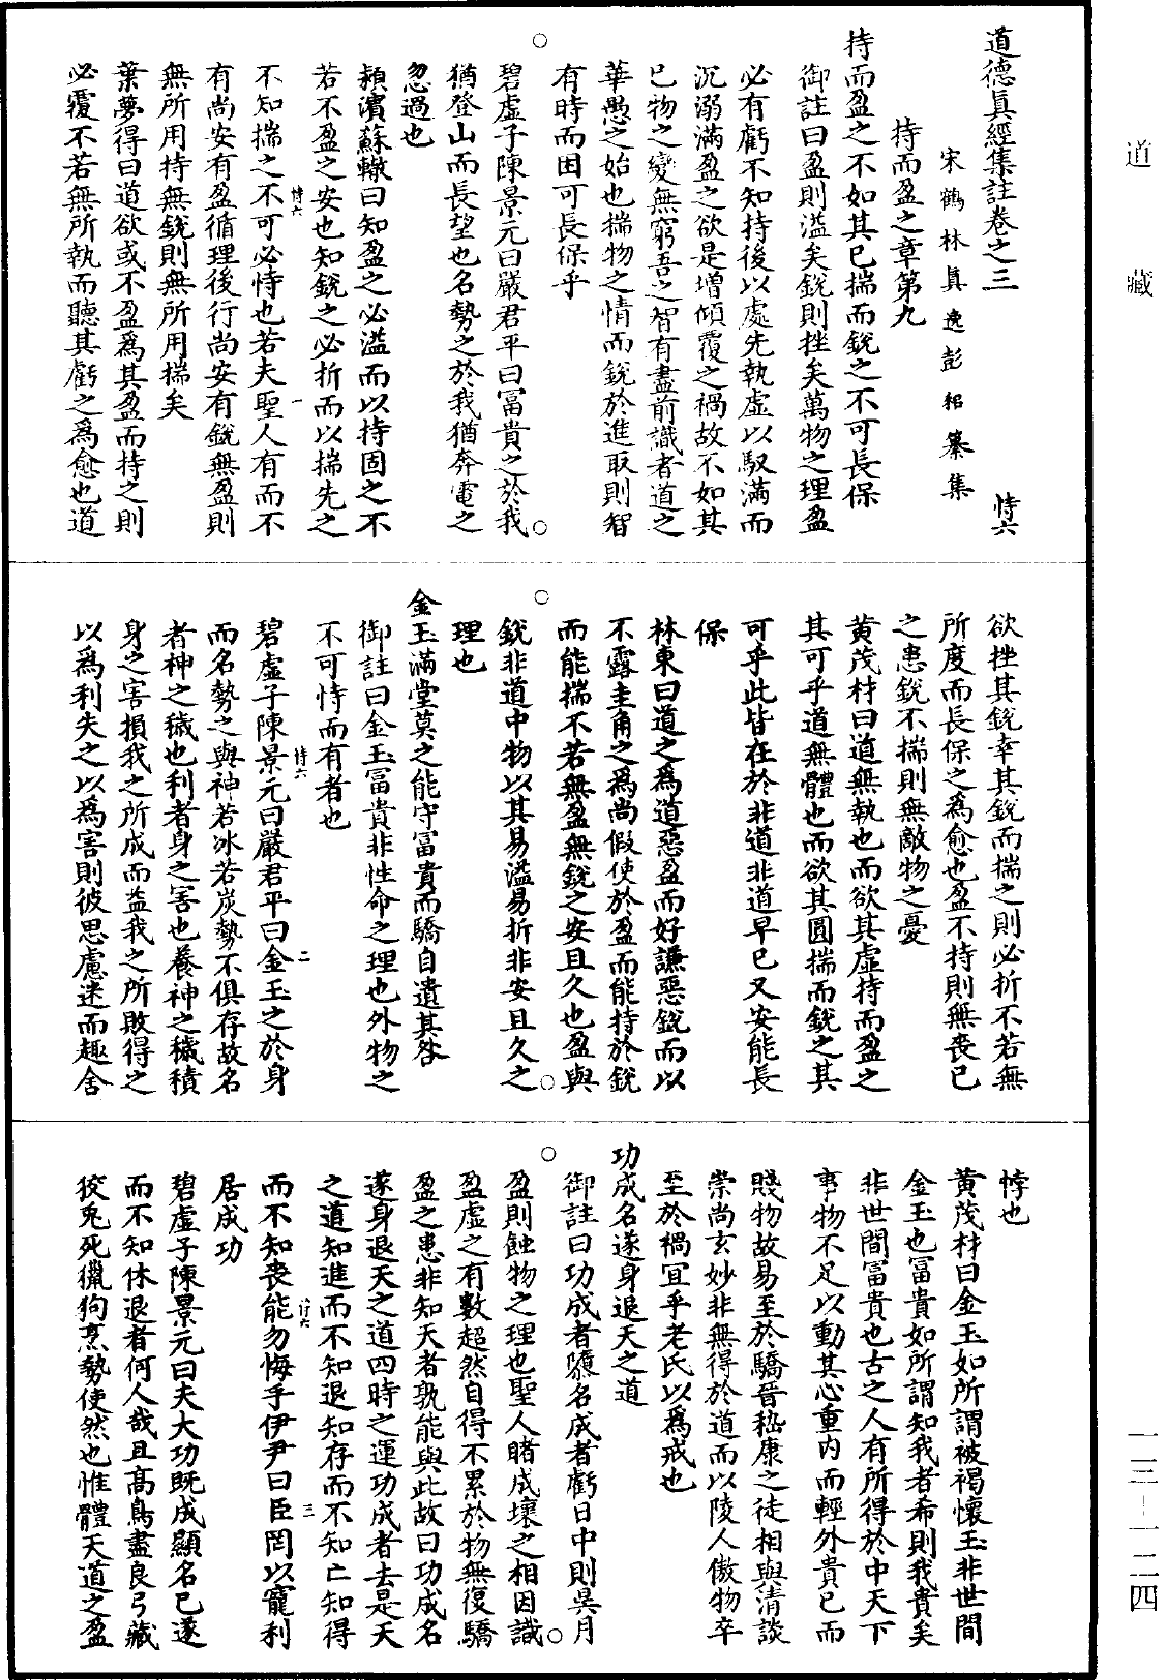 道藏
道德眞經集註卷之三　恃六
宋鶴林眞逸彭耜纂集
持而盈之章第九
持而盈之不如其已揣而銳之不可長保
御註曰盈則溢矣銳則挫矣萬物之理盈
必有虧不知持後以處先執虛以馭滿而
沉溺滿盈之欲是增傾覆之禍故不如其
已物之變無窮吾之智有盡前識者道之
華愚之始也揣物之情而銳於進取則智
有時而困可長保乎
○碧虛子陳景元曰嚴君平曰冨貴之於我○
猶登山而長望也名勢之於我猶奔電之
忽過也
頴濱蘇轍曰知盈之必溢而以持固之不
若不盈之安也知銳之必折而以揣先之
恃六　一
不知揣之不可必恃也若夫聖人有而不
有尚安有盈循理後行尚安有銳無盈則
無所用持無銳則無所用揣矣
葉夢得曰道欲或不盈爲其盈而持之則
必覆不若無所執而聽其虧之爲愈也道
欲挫其銳幸其銳而揣之則必折不若無
所度而長保之爲愈也盈不持則無喪已
之患銳不揣則無敵物之憂
黄茂材曰道無執也而欲其虛持而盈之
其可乎道無體也而欲其圓揣而銳之其
可乎此皆在於非道非道早已又安能長
保
林東曰道之爲道惡盈而好謙惡銳而以
不露圭角之爲尚假使於盈而能持於銳
而能揣不若無盈無銳之安且久也盈與
○銳非道中物以其易溢易折非安且久之○
理也
金玉滿堂莫之能守冨貴而驕自遺其咎
御註曰金玉冨貴非性命之理也外物之
不可恃而有者也
恃六　二
碧虛子陳景元曰嚴君平曰金玉之於身
而名勢之與神若冰若炭勢不俱存故名
者神之穢也利者身之害也養神之穢積
身之害損我之所成而益我之所敗得之
以爲利失之以爲害則彼思慮迷而趣舍
悖也
黄茂材曰金玉如所謂被褐懷玉非世間
金玉也冨貴如所謂知我者希則我貴矣
非世間冨貴也古之人有所得於中天下
事物不足以動其心重内而輕外貴已而
賤物故易至於驕晉嵇康之徒相與清談
崇尚玄妙非無得於道而以陵人傲物卒
至於禍冝乎老氏以爲戒也
功成名遂身退天之道
○御註曰功成者隳名成者虧日中則昃月○
盈則蝕物之理也聖人睹成壞之相因識
盈虛之有數超然自得不累於物無復驕
盈之患非知天者孰能與此故曰功成名
遂身退天之道四時之運功成者去是天
之道知進而不知退知存而不知亡知得
恃六　三
而不知喪能勿悔乎伊尹曰臣罔以寵利
居成功
碧虛子陳景元曰夫大功既成顯名已遂
而不知休退者何人哉且高鳥盡良弓藏
狡兎死獵狗烹勢使然也惟體天道之盈
一三－一二四